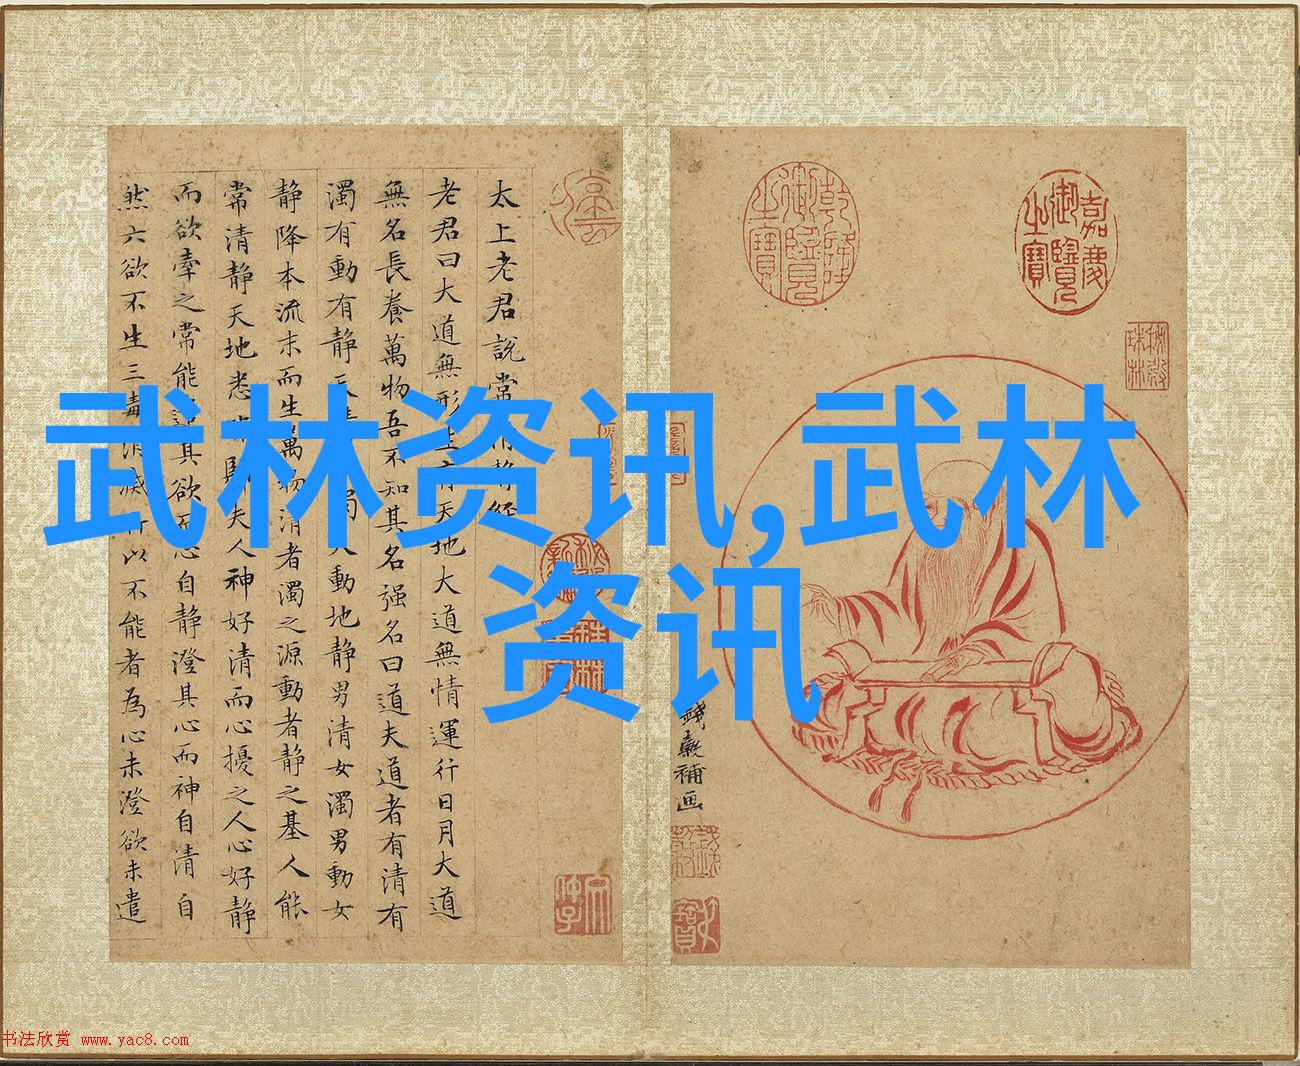 武林资讯,武林
资讯
嘉慶御覽之寶
乾隆御覽之寶
秘殿珠林
錢穀補画
太上老君說常清静經
老君曰大道無形生育天地大道無情運行日月大道
無名長養萬物吾不知其名强名曰道夫道者有清有
濁有動有静天清地濁天動地静男清女濁男動女
静降本流末而生萬物清者濁之源動者静之基人能
常清静天地悉皆歸夫人神好清而心擾之人心好静
而欲牽之常能遣其欲而心自静澄其心而神自清自
然六欲不生三毒消滅所以不能者為心未澄欲未遣
书法欣赏 www.yac8.com